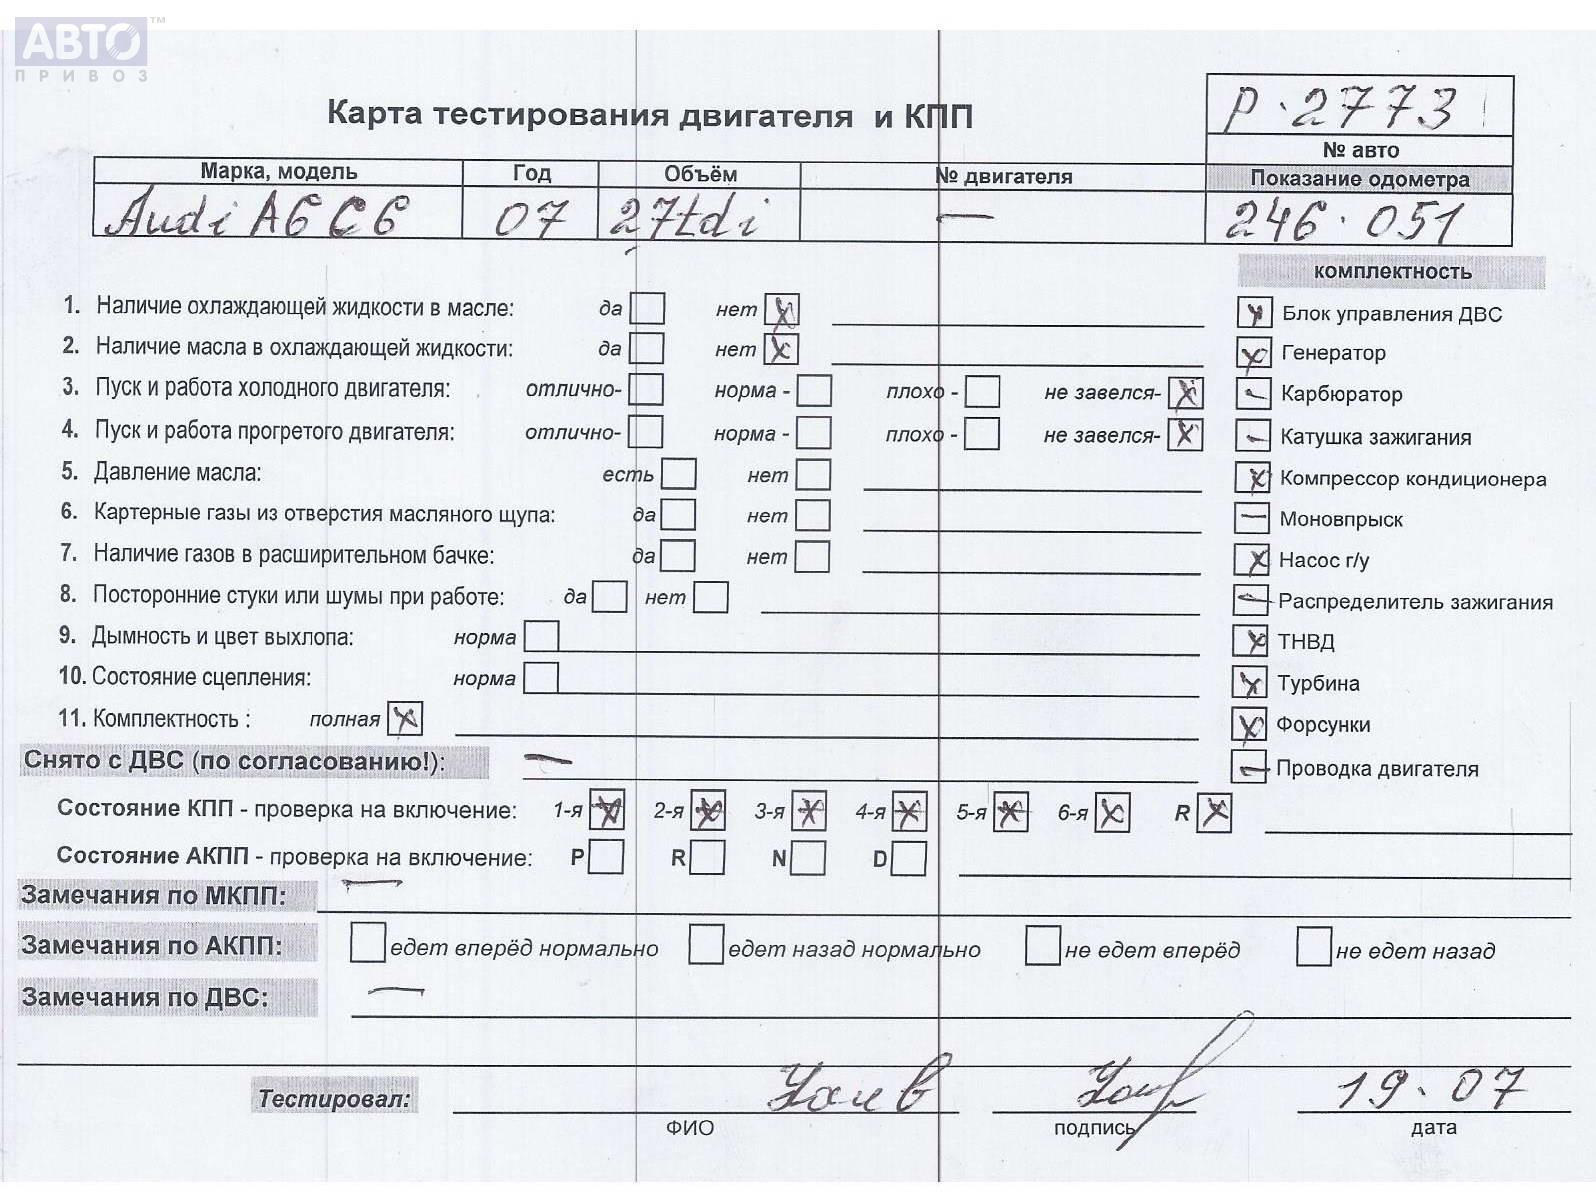 АВТО™
ПРИВОЗ
Карта тестирования двигателя и КПП
Р·2773
№ авто
Марка, модель Год Объём № двигателя Показание одометра
Audi A6 C6 07 27tdi — 246·051
комплектность
1. Наличие охлаждающей жидкости в масле: да нет x
Блок управления ДВС
2. Наличие масла в охлаждающей жидкости: да нет x
Генератор
3. Пуск и работа холодного двигателя: отлично- норма - плохо - не завелся- x
Карбюратор
4. Пуск и работа прогретого двигателя: отлично- норма - плохо - не завелся- x
Катушка зажигания
5. Давление масла: есть нет
Компрессор кондиционера
6. Картерные газы из отверстия масляного щупа: да нет
Моновпрыск
7. Наличие газов в расширительном бачке: да нет
Насос г/у
8. Посторонние стуки или шумы при работе: да нет
Распределитель зажигания
9. Дымность и цвет выхлопа: норма
ТНВД
10. Состояние сцепления: норма
Турбина
11. Комплектность : полная x
Форсунки
Снято с ДВС (по согласованию!): —
Проводка двигателя
Состояние КПП - проверка на включение: 1-я 2-я 3-я 4-я 5-я 6-я R
Состояние АКПП - проверка на включение: P R N D
Замечания по МКПП: —
Замечания по АКПП: едет вперёд нормально едет назад нормально не едет вперёд не едет назад
Замечания по ДВС: —
Тестировал: 19.07
ФИО подпись дата